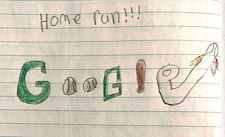 Home run!!!
Google